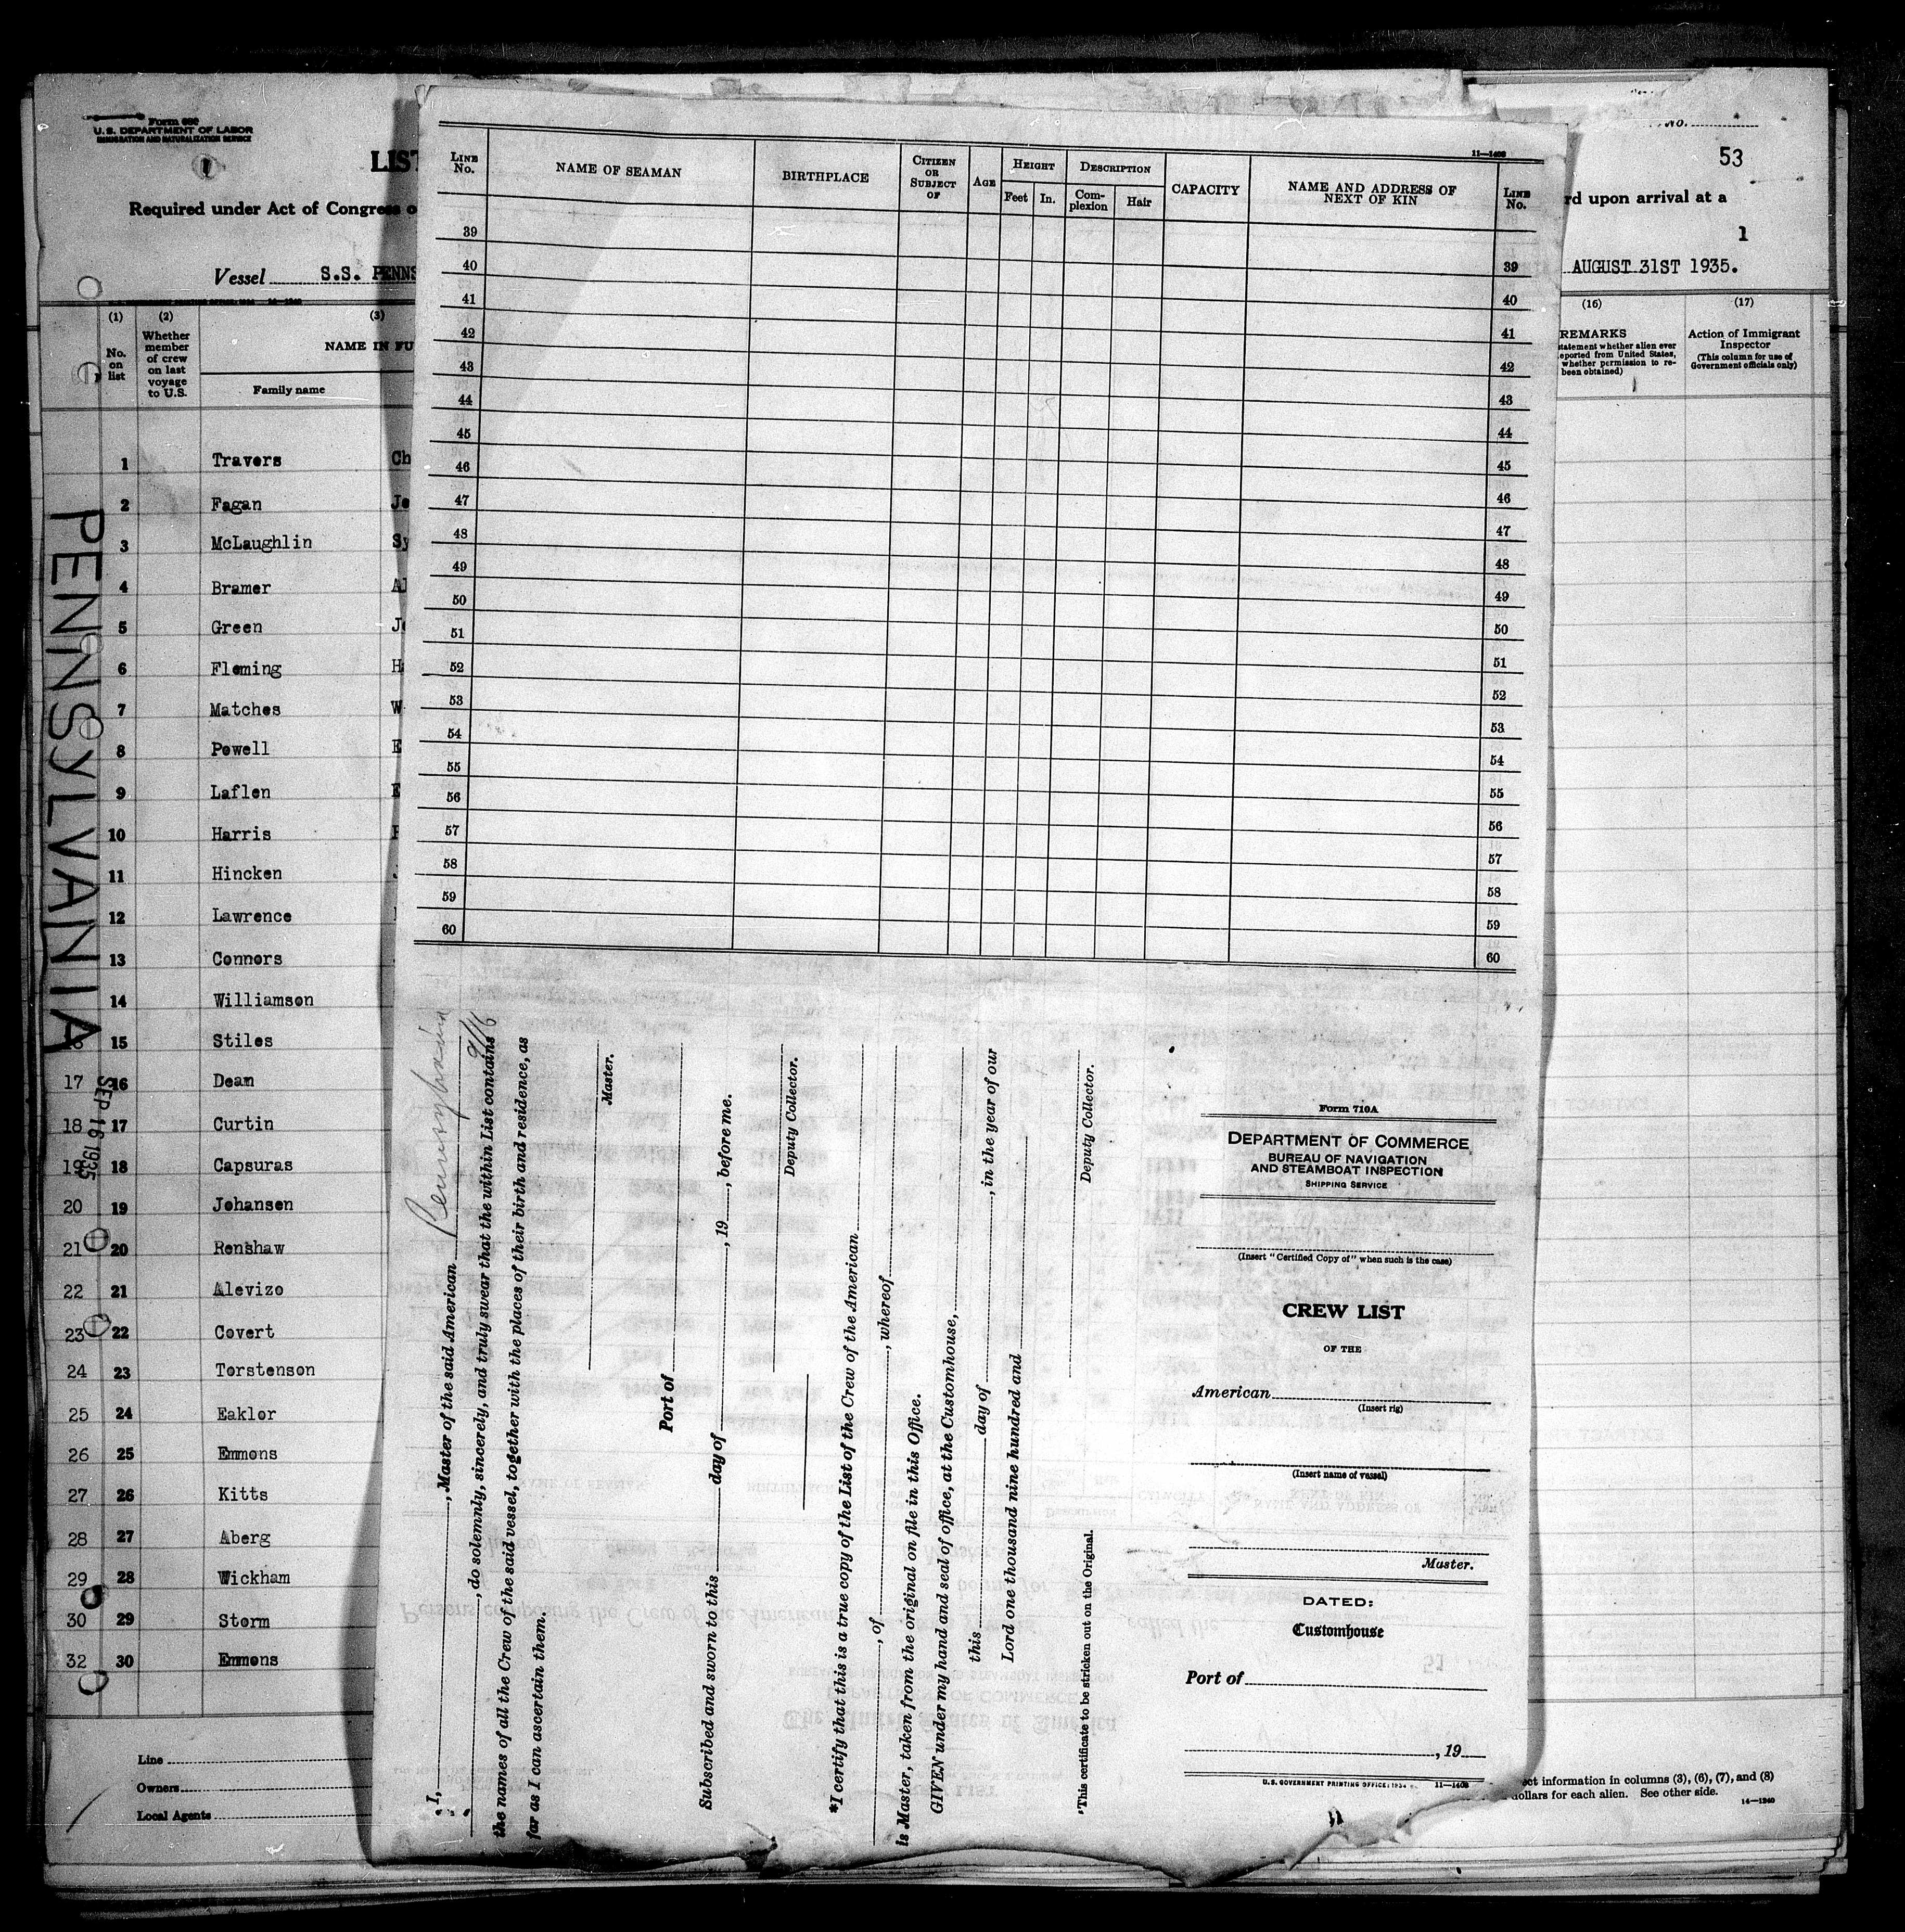 Form 680
U. S. DEPARTMENT OF LABOR
IMMIGRATION AND NATURALIZATION SERVICE
LIST
Required under Act of Congress o
Vessel S.S. PENNS
(1) (2) (3)
No. on list
Whether member of crew on last voyage to U.S.
NAME IN FU
Family name
1 Travers Ch
2 Fagan Je
3 McLaughlin Sy
4 Bramer Al
5 Green Jo
6 Fleming H
7 Matches W
8 Powell E
9 Laflen E
10 Harris
11 Hincken
12 Lawrence
13 Connors
14 Williamson
15 Stiles
17 16 Dean
18 17 Curtin
19 18 Capsuras
20 19 Johansen
21 20 Renshaw
22 21 Alevizo
23 22 Covert
24 23 Torstenson
25 24 Eakler
26 25 Emmons
27 26 Kitts
28 27 Aberg
29 28 Wickham
30 29 Storm
32 30 Emmons
Line
Owners
Local Agents
PENNSYLVANIA
SEP 16 1935
11—1408
LINE No.
NAME OF SEAMAN
BIRTHPLACE
CITIZEN OR SUBJECT OF
AGE
HEIGHT
Feet In.
DESCRIPTION
Complexion Hair
CAPACITY
NAME AND ADDRESS OF NEXT OF KIN
LINE No.
39 39
40 40
41 41
42 42
43 43
44 44
45 45
46 46
47 47
48 48
49 49
50 50
51 51
52 52
53 53
54 54
55 55
56 56
57 57
58 58
59 59
60 60
I, , Master of the said American Pennsylvania
9/16
, do solemnly, sincerely, and truly swear that the within List contains
the names of all the Crew of the said vessel, together with the places of their birth and residence, as
far as I can ascertain them.
Master.
Port of
Subscribed and sworn to this day of , 19 , before me.
Deputy Collector.
*I certify that this is a true copy of the List of the Crew of the American
, of , whereof
is Master, taken from the original on file in this Office.
GIVEN under my hand and seal of office, at the Customhouse,
this day of , in the year of our
Lord one thousand nine hundred and
Deputy Collector.
*This certificate to be stricken out on the Original.
Form 710A
DEPARTMENT OF COMMERCE
BUREAU OF NAVIGATION
AND STEAMBOAT INSPECTION
SHIPPING SERVICE
(Insert "Certified Copy of" when such is the case)
CREW LIST
OF THE
American
(Insert rig)
(Insert name of vessel)
Master.
DATED:
Customhouse
Port of
, 19
U.S. GOVERNMENT PRINTING OFFICE: 1934 11—1408
No.
53
rd upon arrival at a
1
AUGUST 31ST 1935.
(16) (17)
REMARKS
statement whether alien ever
eported from United States,
whether permission to re-
been obtained)
Action of Immigrant
Inspector
(This column for use of
Government officials only)
ct information in columns (3), (6), (7), and (8)
dollars for each alien. See other side.
14—1240